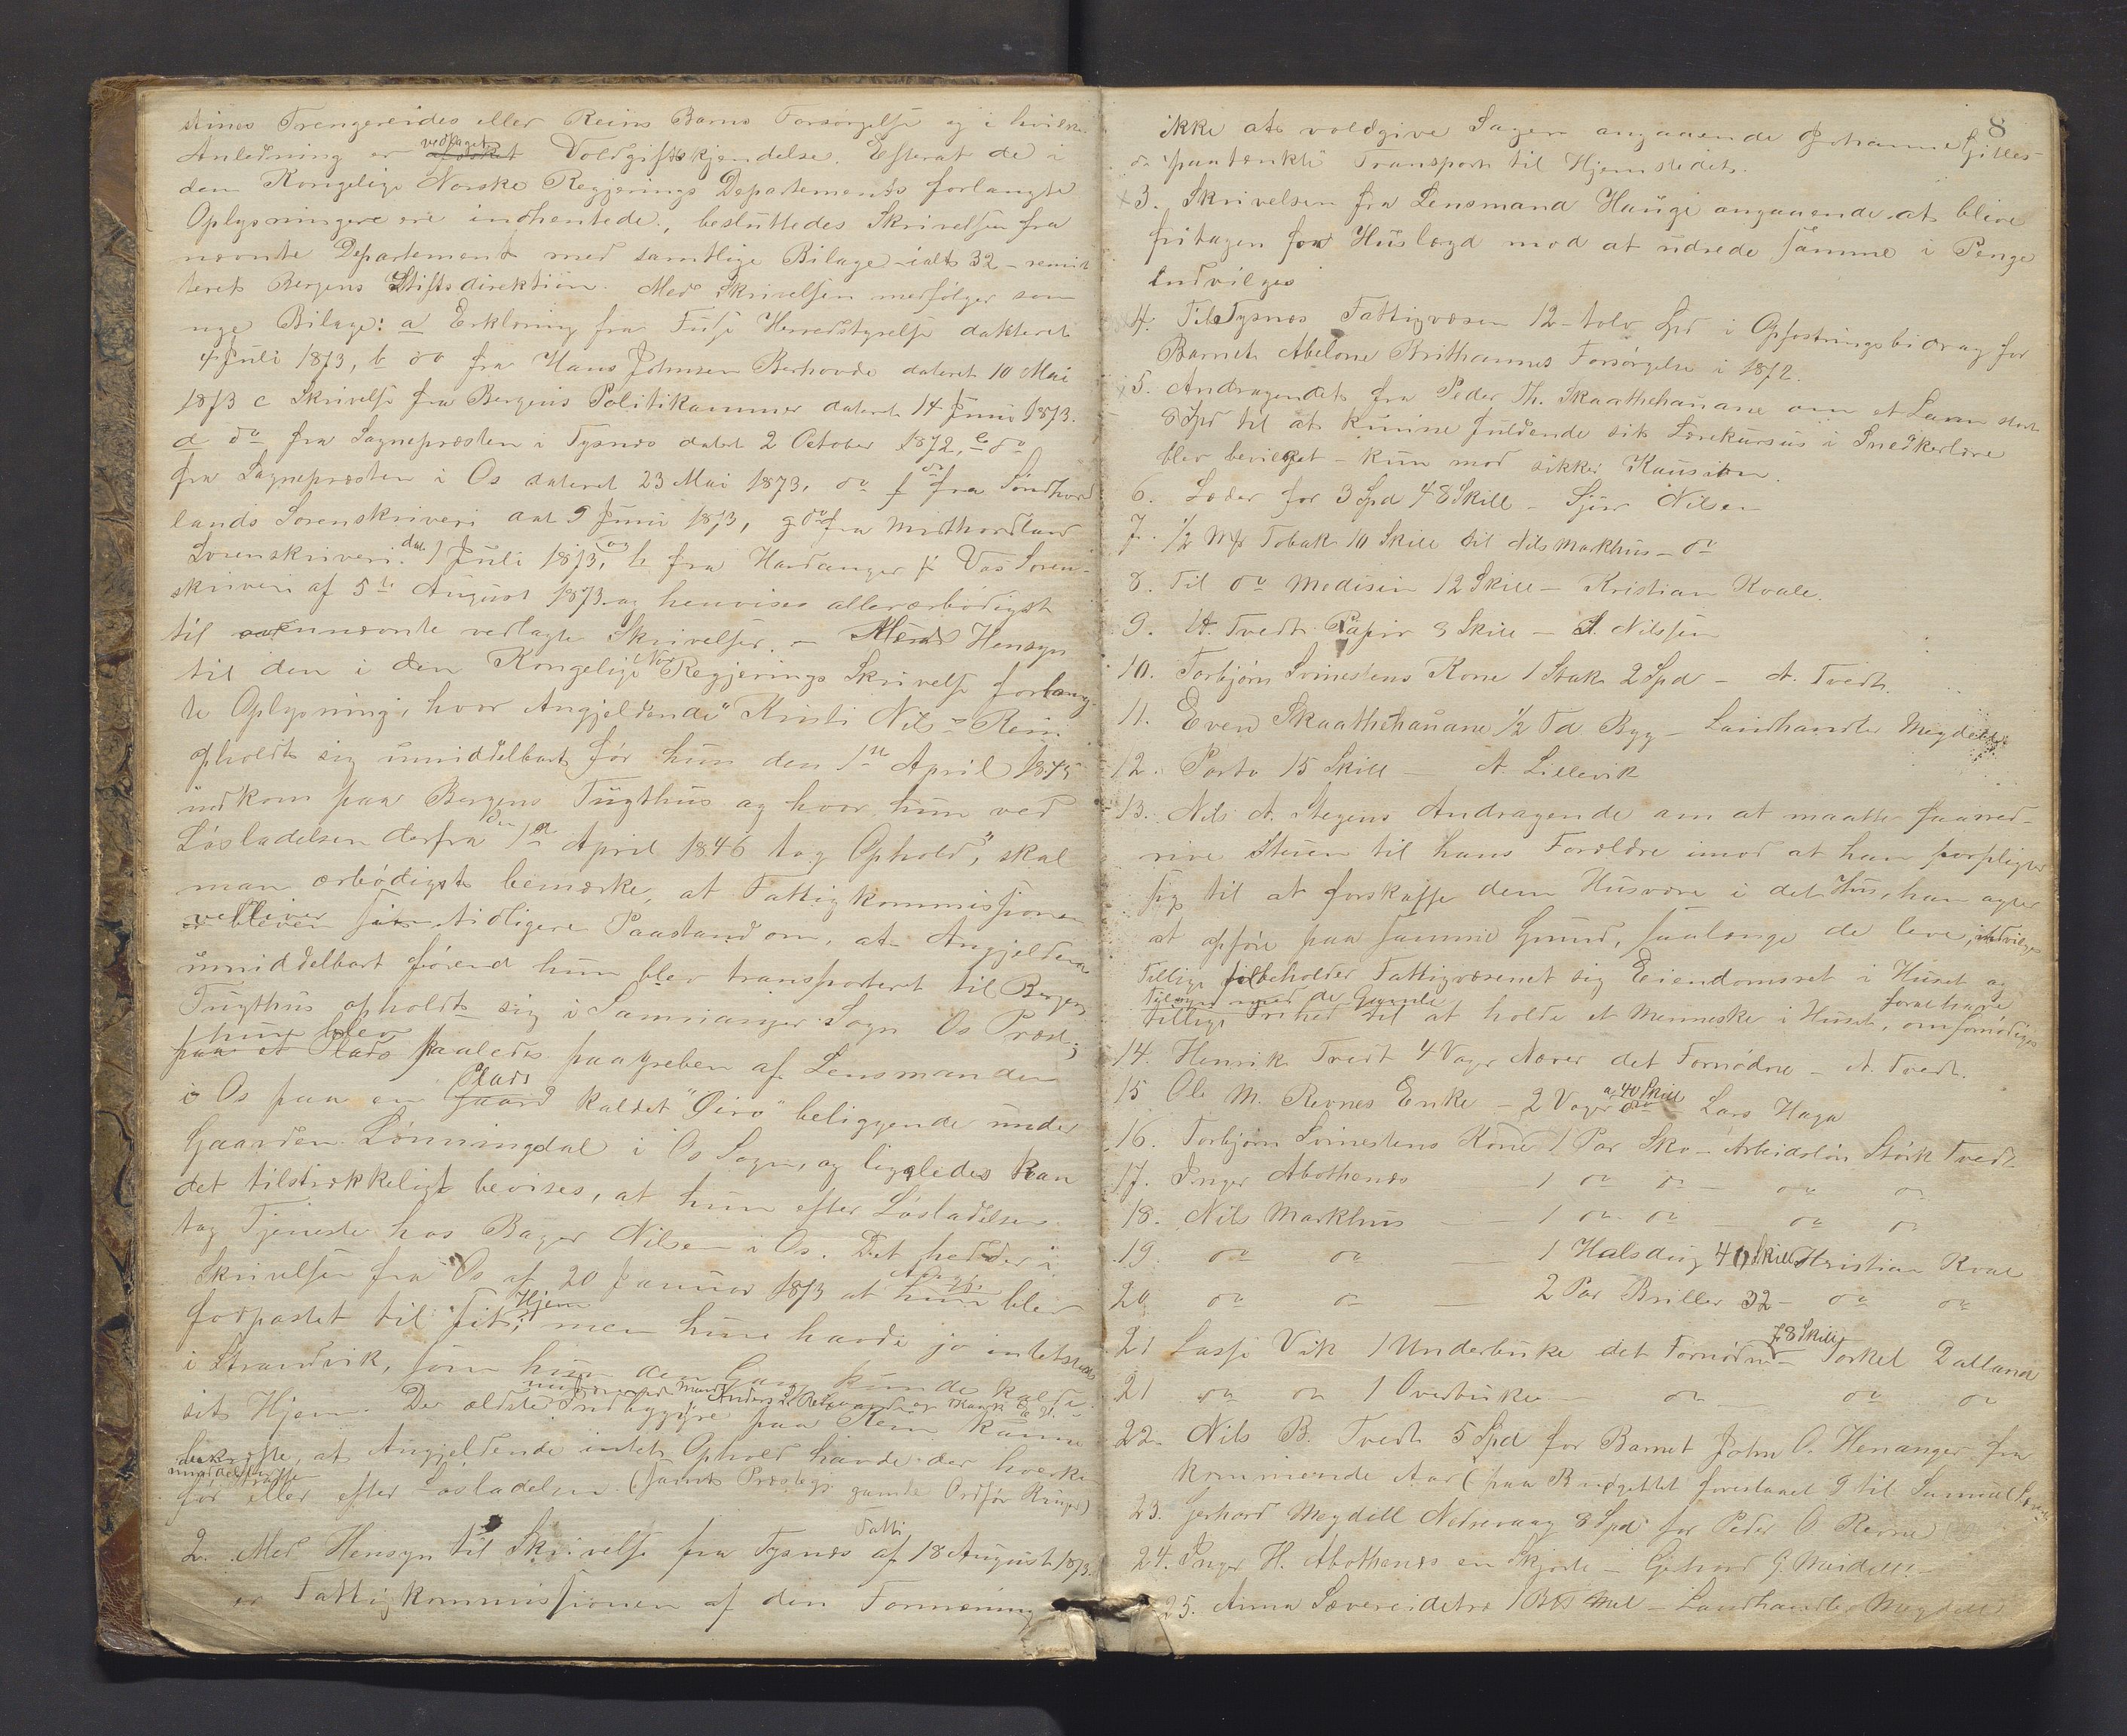 stines Trengereides eller Reins Barns Forsørgelse og i hvilken
Anledning er vedtaget Voldgiftskjendelse. Efterat de i
den Kongelige Norske Regjerings Departements forlangte
Oplysninger ere indhentede, besluttedes Skrivelsen fra
nevnte Departement med samtlige Bilage - ialt 32 - remit
teret Bergens Stiftsdirektion. Med Skrivelsen medfølger som
nye Bilage: a Erklæring fra Fuse Herredstyrelse datteret
4 Juli 1873, b do fra Hans Johnsen Berhovde dateret 10 Mai
1873 c Skrivelse fra Bergens Politikammer dateret 14 Juni 1873.
d do fra Sognepresten i Tysnes datet 2 October 1872, e do
fra Sognepresten i Os dateret 23 Mai 1873, do f do fra Søndhord
lands Sorenskriveri dat 9 Juni 1873, g do fra Midthordland
Sorenskriveri dat. 1 Juli 1873, og h fra Hardanger & Vos Soren-
skriveri af 5te August 1873 og henvises allerærbødigst
til nevnte vedlagte Skrivelser. - Med Hensyn
til den i den Kongelige No Regjerings Skrivelse forlang-
te Oplysning, hvor Angjeldende "Kristi Nilsd Rein
opholdt sig umiddelbart før hun den 1ste April 1845
indkom paa Bergens Tugthus og hvor hun ved
Løsladelsen derfra den 1ste April 1846 tog Ophold", skal
man ærbødigst bemærke, at Fattigkommissionen
vedbliver sin tidligere Paastand om, at Angjeldende
umiddelbart førend hun blev transporteret til Bergens
Tugthus opholdt sig i Samnanger Sogn Os Prest;
hun blev
paa et Plads saaledes paagreben af Lensmanden
i Os paa en Plads Gaard kaldet "Øiro" beliggende under
Gaarden Lønningdal i Os Sogn, og ligeledes kan
det tilstrækkeligt bevises, at hun efter Løsladelsen
tog Tjeneste hos Bager Nilsen i Os. Det hedder i
Skrivelsen fra Os af 20 Januar 1873 at hun blev
fodpastet til sit Hjem, men hun havde jo intetsteds
i Strandvik, som hun den Gang kunde kalde
sit Hjem. De ældste Indbyggere paa Rein kunne
bekræfte, at Angjeldende intet Ophold havde der hverken
før eller efter Løsladelsen (samt Prestegj gamle Ordfør Riisger)
2. Med Hensyn til Skrivelse fra Tysnes Fatti af 18 August 1873.
er Fattigkommissionen af den Formening
8
ikke at voldgive Sagen angaaende Johanne Gjilles-
do paatænkte Transport til Hjemstedet.
3. Skrivelsen fra Lensmand Hauge angaaende at blive
fritagen for Huslægd mod at udrede samme i Penge
Indvilges
4. Til Tysnes Fattigvæsen 12 - tolv Spd i Opfostringsbidrag for
Barnet Abelone Brithannes Forsørgelse i 1872.
5. Andragendet fra Peder Th. Skaathehauane om et Laan stort
8 Spd til at kunne fuldende sit Lærekursus i Snedkerlære
blev bevilget - kun mod sikker Kaution.
6. Læder for 3 Spd 48 Skill - Sjur Nilsen
7. 1/2 Mk Tobak 10 Skill til Nils Markhus - do
8. Til do Medisin 12 Skill - Kristian Kvale.
9. A. Tvedt Papir 8 Skill - S. Nilssen
10. Torbjørn Svinestens Kone 1 Stak 2 Spd - A. Tvedt.
11. Even Skaathehauane 1/2 Td Byg - Landhandler Meydell
12. Porto 15 Skill - A. Lillevik
13. Nils A. Stegens Andragende om at maatte faa ned-
rive Stuen til hans Forældre imod at han forpligter
sig til at forskaffe dem Husvære i det Hus, han agter
at opføre paa samme Grund, saalænge de leve, indvilges
Tillige forbeholder Fattigvæsenet sig Eiendomsret i Huset og
Tilsyn med de Gamle
tillige Frihed til at holde et Menneske i Huset, om fornødiges
14. Henrik Tvedt 4 Voger Næver det Fornødne - A. Tvedt.
15 Ole M. Revnes Enke - 2 Voger do a 40 Skill Lars Haga
16. Torbjørn Svinestens Kone 1 Par Sko - Arbeidsløn Størk Tvedt
17. Inger Abothsnes - 1 do do - do do
18. Nils Markhus - 1 do do - do do
19. do do - 1 Halsdug 40 Skill Kristian Kval
20 do do - 2 Par Briller 32 - do do
21 Lasse Vik 1 Underbuxe det Fornødne - 78 Skill Torkel Dalland
21 do do 1 Overbuxe - do do do
22. Nils B. Tvedt 5 Spd for Barnet John O. Henanger fra
kommende Aar (paa Budgettet foreslaaet 9 til Samuel
23. Gerhard Meydell Nedrevaag 8 Spd for Peder O. Revne
24. Inger H. Abothsnes en Skjorte - Gjerhard G Meidell.
25. Anna Sævereidetræ 1 Mel - Landhandler Meydell